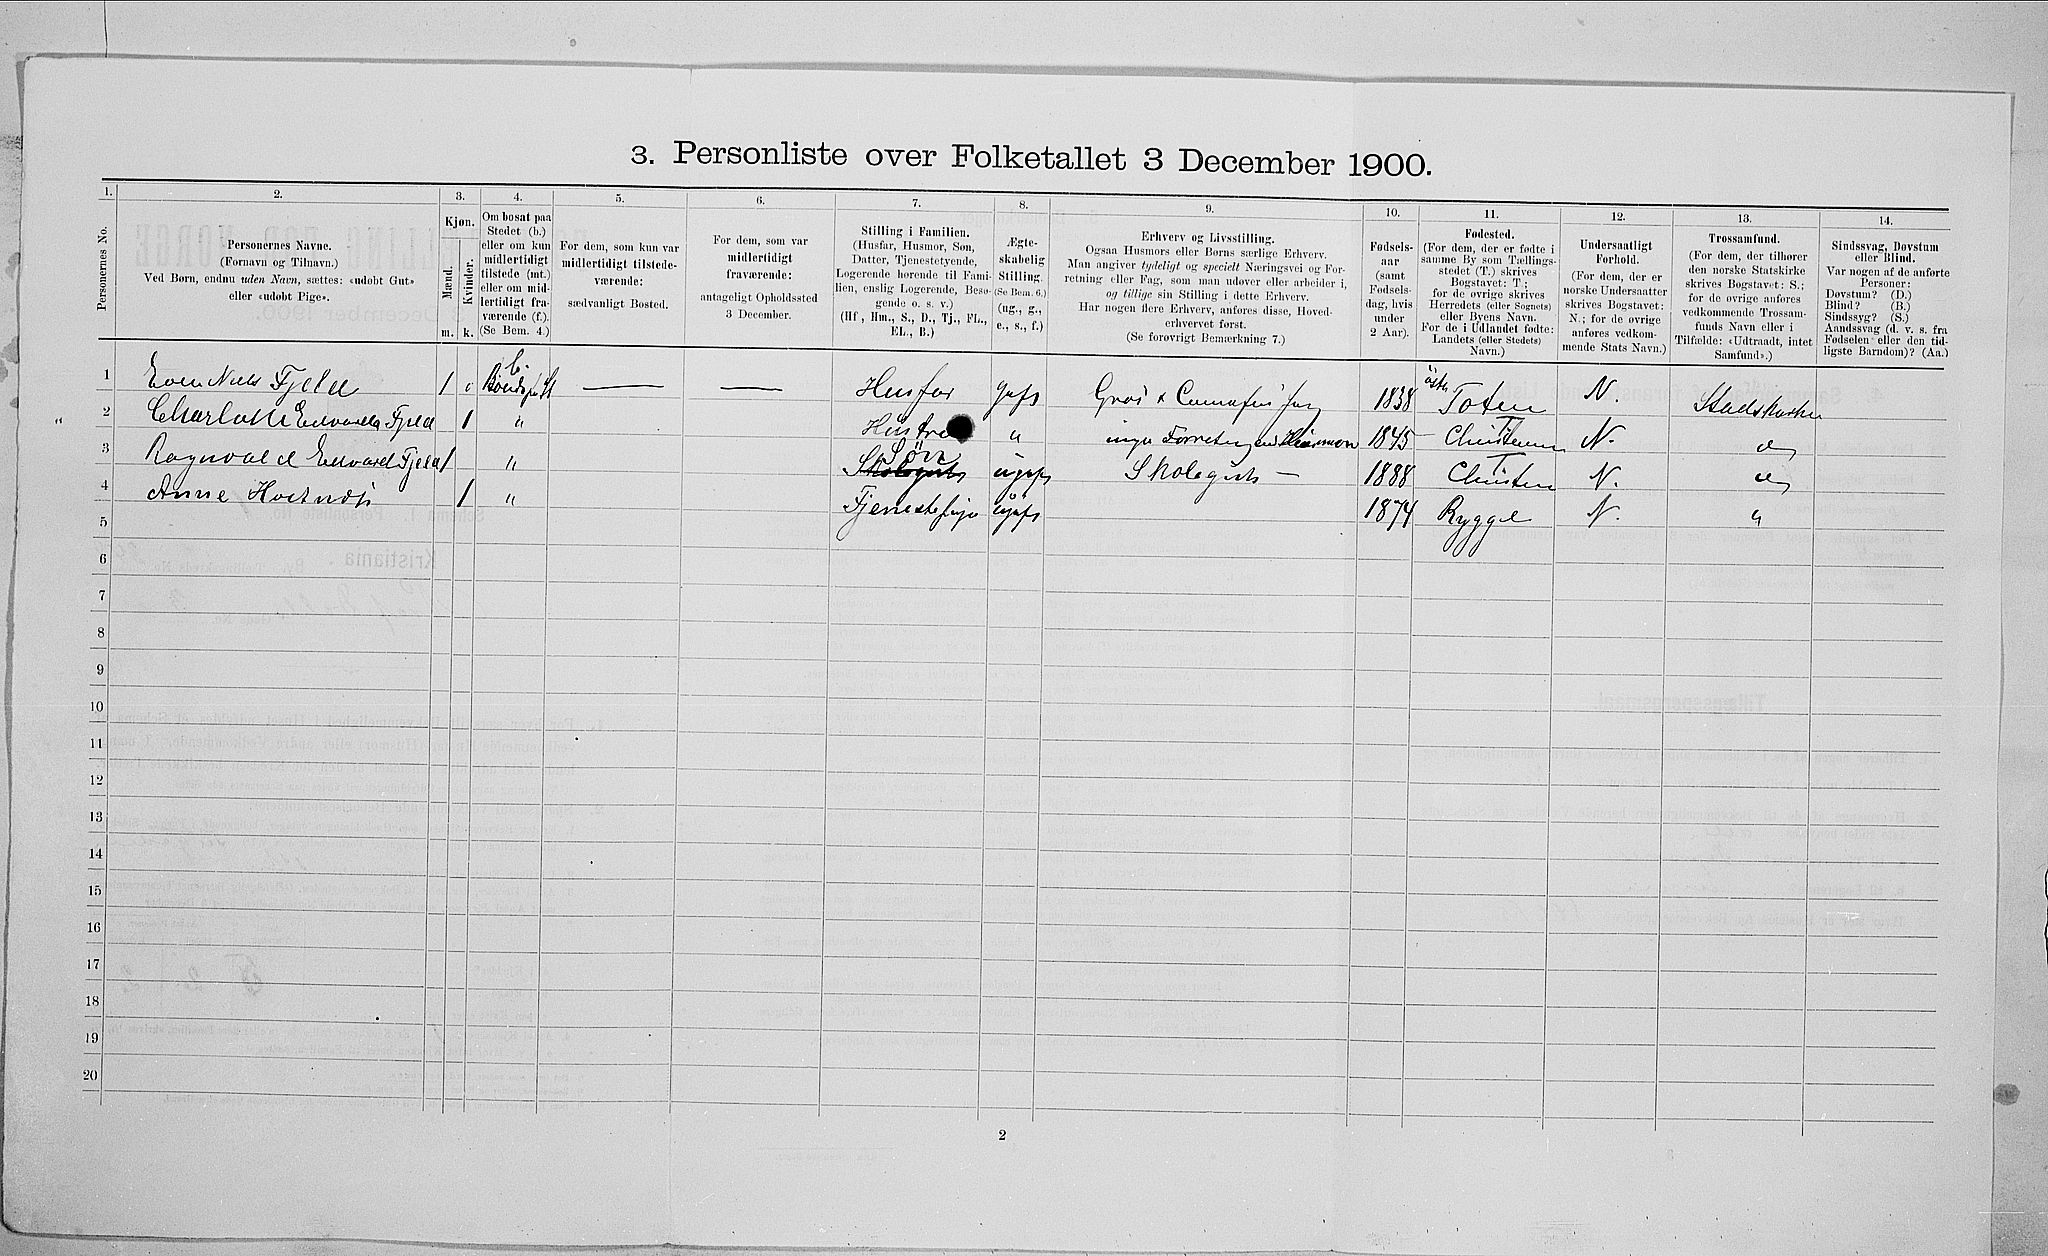 3. Personliste over Folketallet 3 December 1900.
1. 2. 3. 4. 5. 6. 7. 8. 9. 10. 11. 12. 13. 14.
Personernes No.
Personernes Navne.
(Fornavn og Tilnavn.)
Ved Børn, endnu uden Navn, sættes: «udøbt Gut»
eller «udøbt Pige».
Kjøn.
Mænd.
Kvinder.
m. k.
Om bosat paa
Stedet (b.)
eller om kun
midlertidigt
tilstede (mt.)
eller om mid-
lertidigt fra-
værende (f.).
(Se Bem. 4.)
For dem, som kun var
midlertidigt tilstede-
værende:
sædvanligt Bosted.
For dem, som var
midlertidigt
fraværende:
antageligt Opholdssted
3 December.
Stilling i Familien.
(Husfar, Husmor, Søn,
Datter, Tjenestetyende,
Logerende hørende til Fami-
lien, enslig Logerende, Besø-
gende o. s. v.)
(Hf, Hm., S., D., Tj., FL.,
EL., B.)
Ægte-
skabelig
Stilling.
(Se Bem. 6.)
(ug., g.,
e., s., f.)
Erhverv og Livsstilling.
Ogsaa Husmors eller Børns særlige Erhverv.
Man angiver tydeligt og specielt Næringsvei og For-
retning eller Fag, som man udøver eller arbeider i,
og tillige sin Stilling i dette Erhverv.
Har nogen flere Erhverv, anføres disse, Hoved-
erhvervet først.
(Se forøvrigt Bemærkning 7.)
Fødsels-
aar
(samt
Fødsels-
dag, hvis
under
2 Aar).
Fødested.
(For dem, der er fødte i
samme By som Tællings-
stedet (T.) skrives
Bogstavet: T;
for de øvrige skrives
Herredets (eller Sognets)
eller Byens Navn.
For de i Udlandet fødte:
Landets (eller Stedets)
Navn.)
Undersaatligt
Forhold.
(For dem, der er
norske Undersaatter
skrives Bogstavet:
N.; for de øvrige
anføres vedkom-
mende Stats Navn.)
Trossamfund.
(For dem, der tilhører
den norske Statskirke
skrives Bogstavet: S.;
for de øvrige anføres
vedkommende Trossam-
funds Navn eller i
Tilfælde: «Udtraadt, intet
Samfund».)
Sindssvag, Døvstum
eller Blind.
Var nogen af de anførte
Personer:
Døvstum? (D.)
Blind? (B.)
Sindssyg? (S.)
Aandssvag (d. v. s. fra
Fødselen eller den tid-
ligste Barndom)? (Aa.)
1 Even Niels Fjeld 1 b. Husfar 1838 Toten N.
2 Edvarda Fjeld 1 " Hustru " 1845 N.
3 Ragnvald Edvard Fjeld 1 " Søn Skolegut 1888 N.
4 Anne 1 " 1874 Rygge N. "
5
6
7
8
9
10
11
12
13
14
15
16
17
18
19
20
2